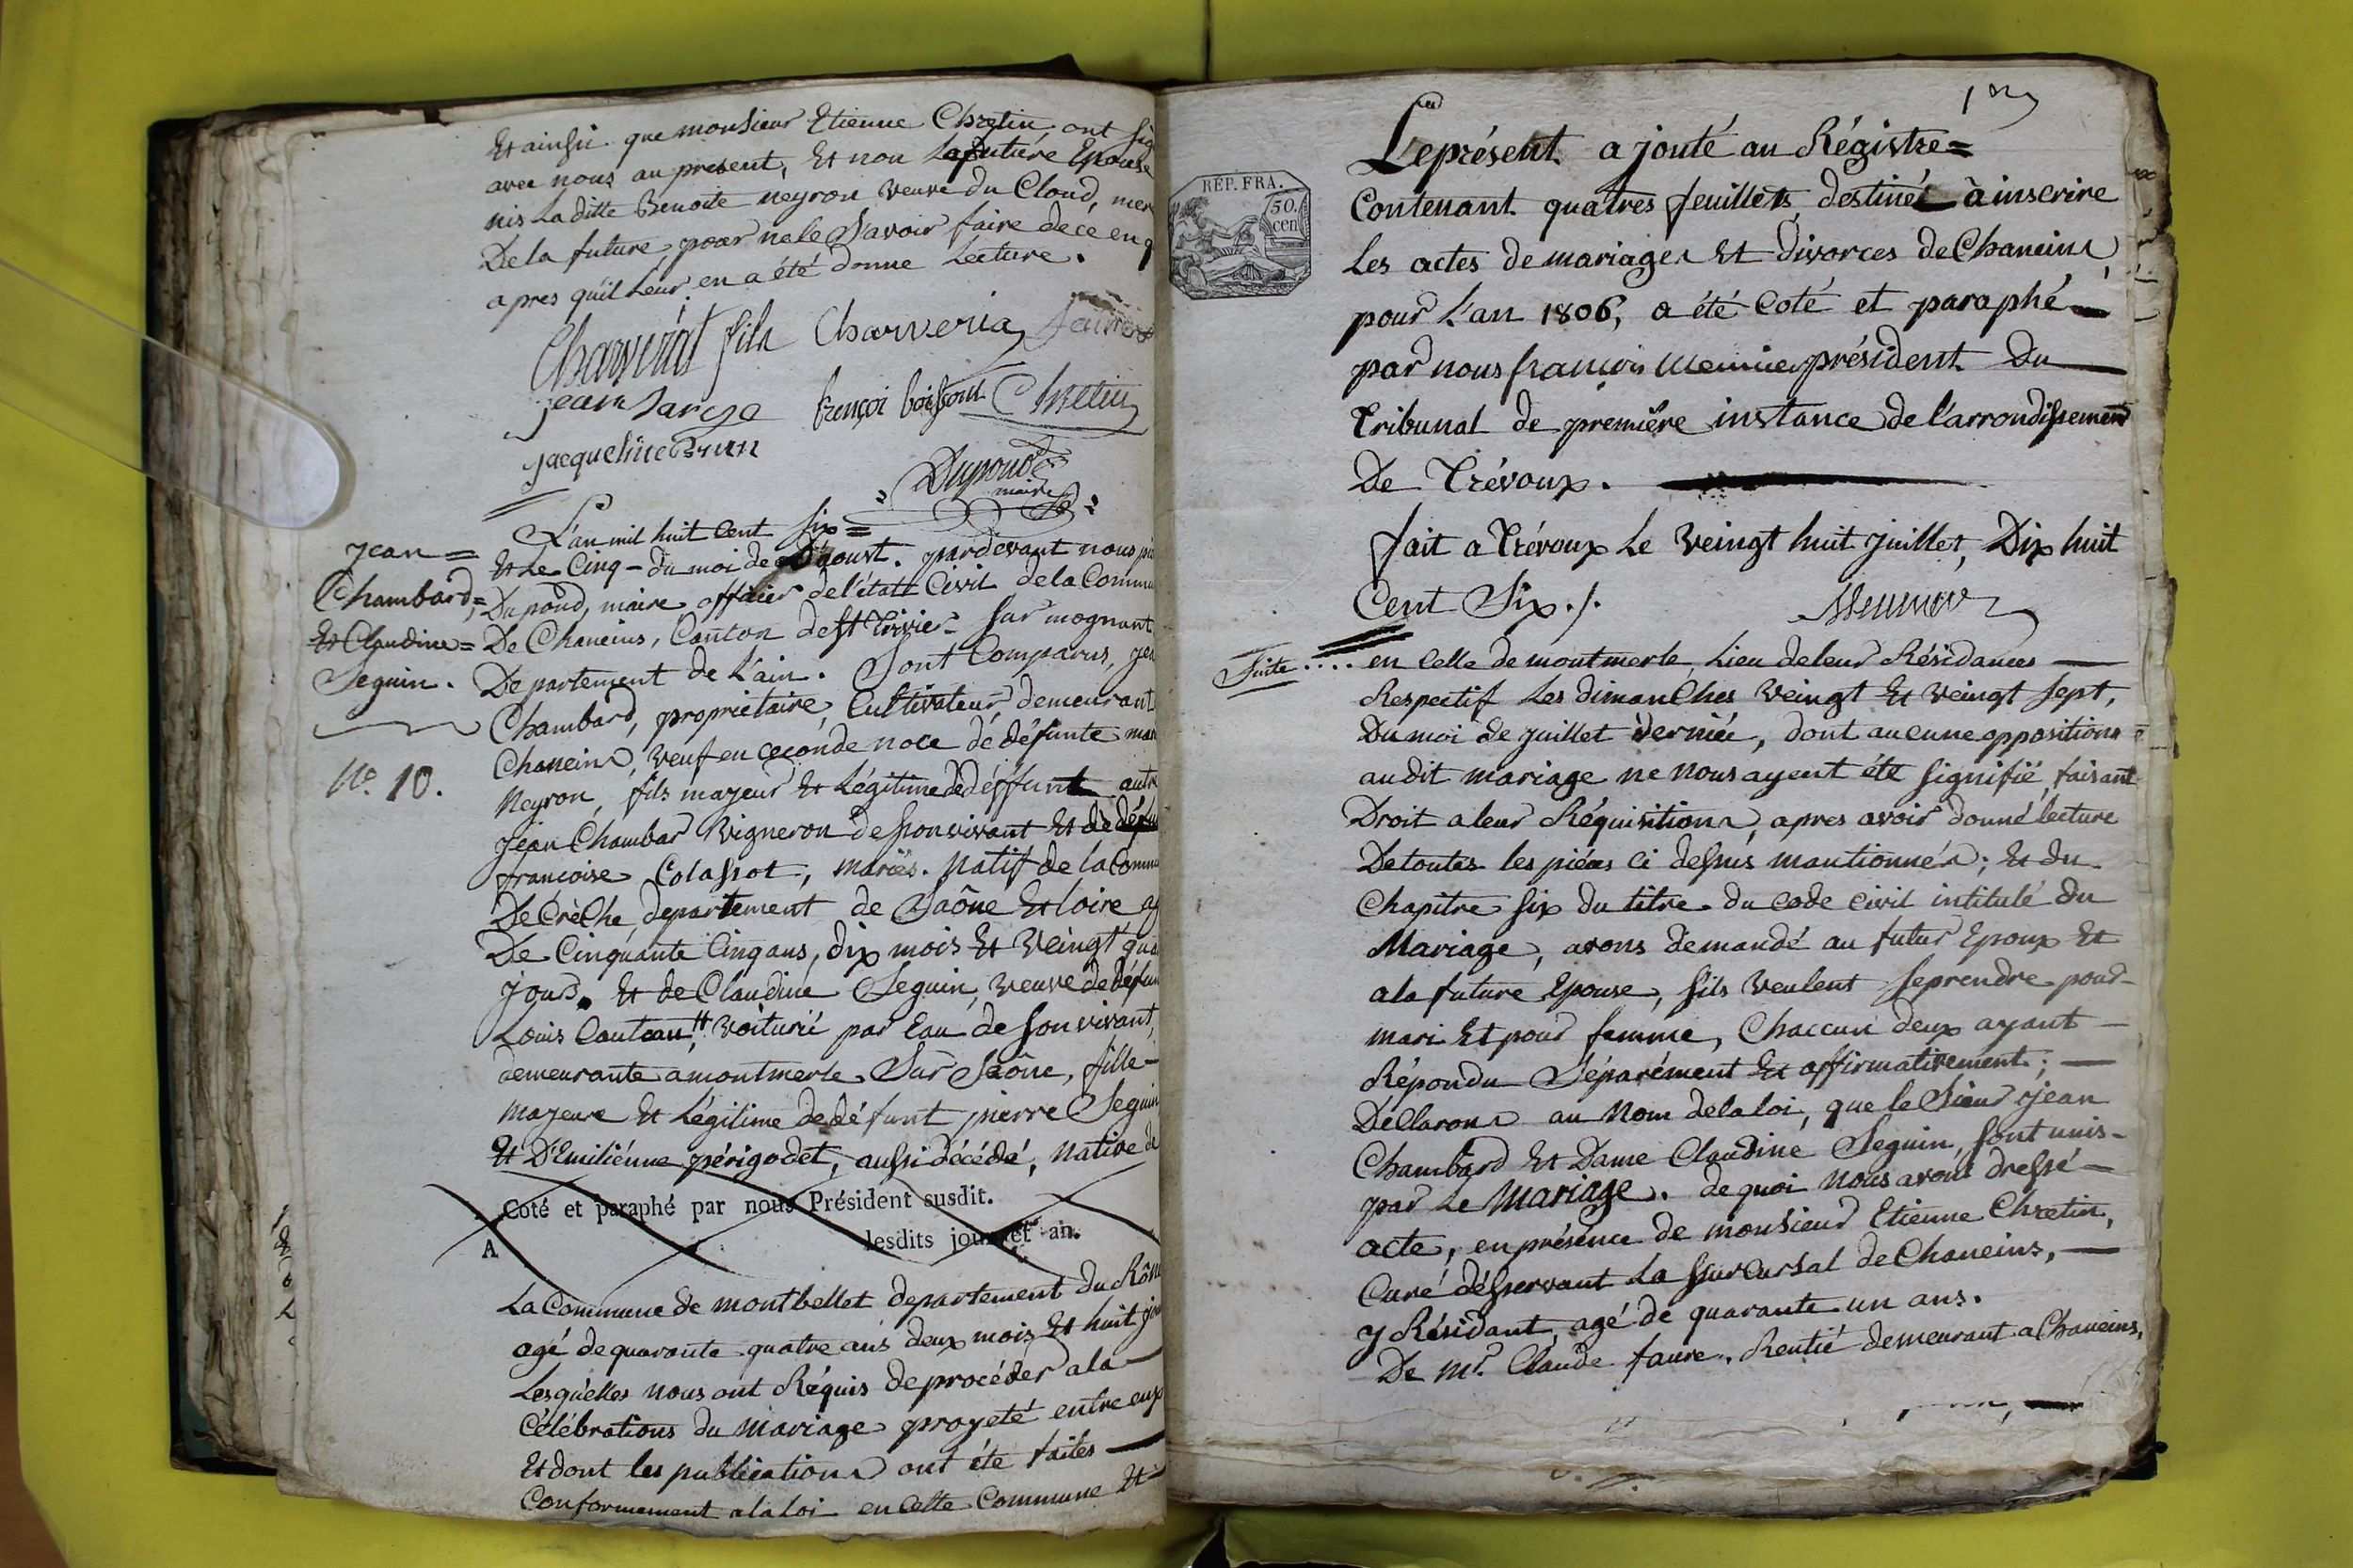 Et ainsii que monsieur Etienne Chretin, ont sig
avec nous au present, Et non La future Epouse
nis La ditte Benoite neyron veuve du Cloud, mer
De la future, pour ne le Savoir faire de ce en q
apres quil Leur en a été donne Lecture.
Charverial fils Charveria
jean françoi boisson Chretin
jacqueline Brun
Dupoud
maire
L'an mil huit Cent Six =
Et Le Cinq - du moi de Daoust. pardevant nous pi
Dupoud, maire officier de l'étatt Civil de la Commu
De Chaneins, Canton de St Trivier Sur mognant
Departement de L'ain. Sont Comparus, jea
Chambard, propriétaire, Cultivateur, demeurant
Chaneins, veuf en ceconde noce de défunte mar
Neyron, fils majeur Et Légitime de déffunt autr
jean Chambar Vigneron de son vivant Et de défu
francoise Colassot, mariés. Natif de la Commu
De Crèche, departement de Saône Et Loire ag
De Cinquante Cinq ans, dix mois Et Veingt qua
jours. Et de Claudine Seguin, veuve de défun
Louis Couteau, voiturié par Eau de son vivant,
demeurante a montmerle Sur Saône, fille -
majeure Et Légitime de défunt pierre Seguin
Et D'Emiliénne périgodet, aussi décédé, Native de
jean =
Chambard, =
Et Claudine =
Seguin.
No. 10.
Coté et paraphé par nous Président susdit.
A lesdits jour et an.
La Commune de montbellet departement du Rône
agé de quarante quatre ans deux mois Et huit jou
Lesquelles nous ont Réquis de procéder a la
Célébrations du Mariage proyeté entre eux
Et dont les publications ont été faites
Conformement a la Loi en Cette Commune Et
RÉP. FRA.
50.
cen
Le présent a jouté au Régistre =
Contenant quatres feuillets, destinéé à inscrire
Les actes de mariages Et Divorces de Chaneins,
pour L'an 1806, a été Coté et paraphé
par nous françois Meunier président Du
Tribunal de première instance de l'arrondissement
De Trévoux.
fait a Trévoux Le Veingt huit juillet, Dix huit
Cent Six ./.
Meunier
Suite .... en Celle de montmerle, Lieu de leur Résidances
Respectif Les dimanches Veingt Et Veingt Sept,
Du moi de juillet dernié, dont aucune oppositions
au dit mariage ne Nous ayent été signifié, faisant
Droit a leur Réquisitions, apres avoir donné lecture
De toutes les piéces ci dessus mantionnés; Et du
Chapitre six du titre du code Civil intitulé du
Mariage, avons demandé au futur Epoux Et
a la future Epouse, Sils veulent se prendre pour
mari Et pour femme, Chaccun deux ayant -
Répondu Séparément Et affirmativement;
Déclarons au Nom de la loi, que le Sieur jean
Chambard Et Dame Claudine Seguin, sont unis -
par Le Mariage. de quoi Nous avons dressé -
acte, en présence de monsieur Etienne Chretin,
Curé désservant La Surcursal de Chaneins,
y Résidant, agé de quarante un ans.
De Mr. Claude faure, Rentié demeurant a Chaneins,